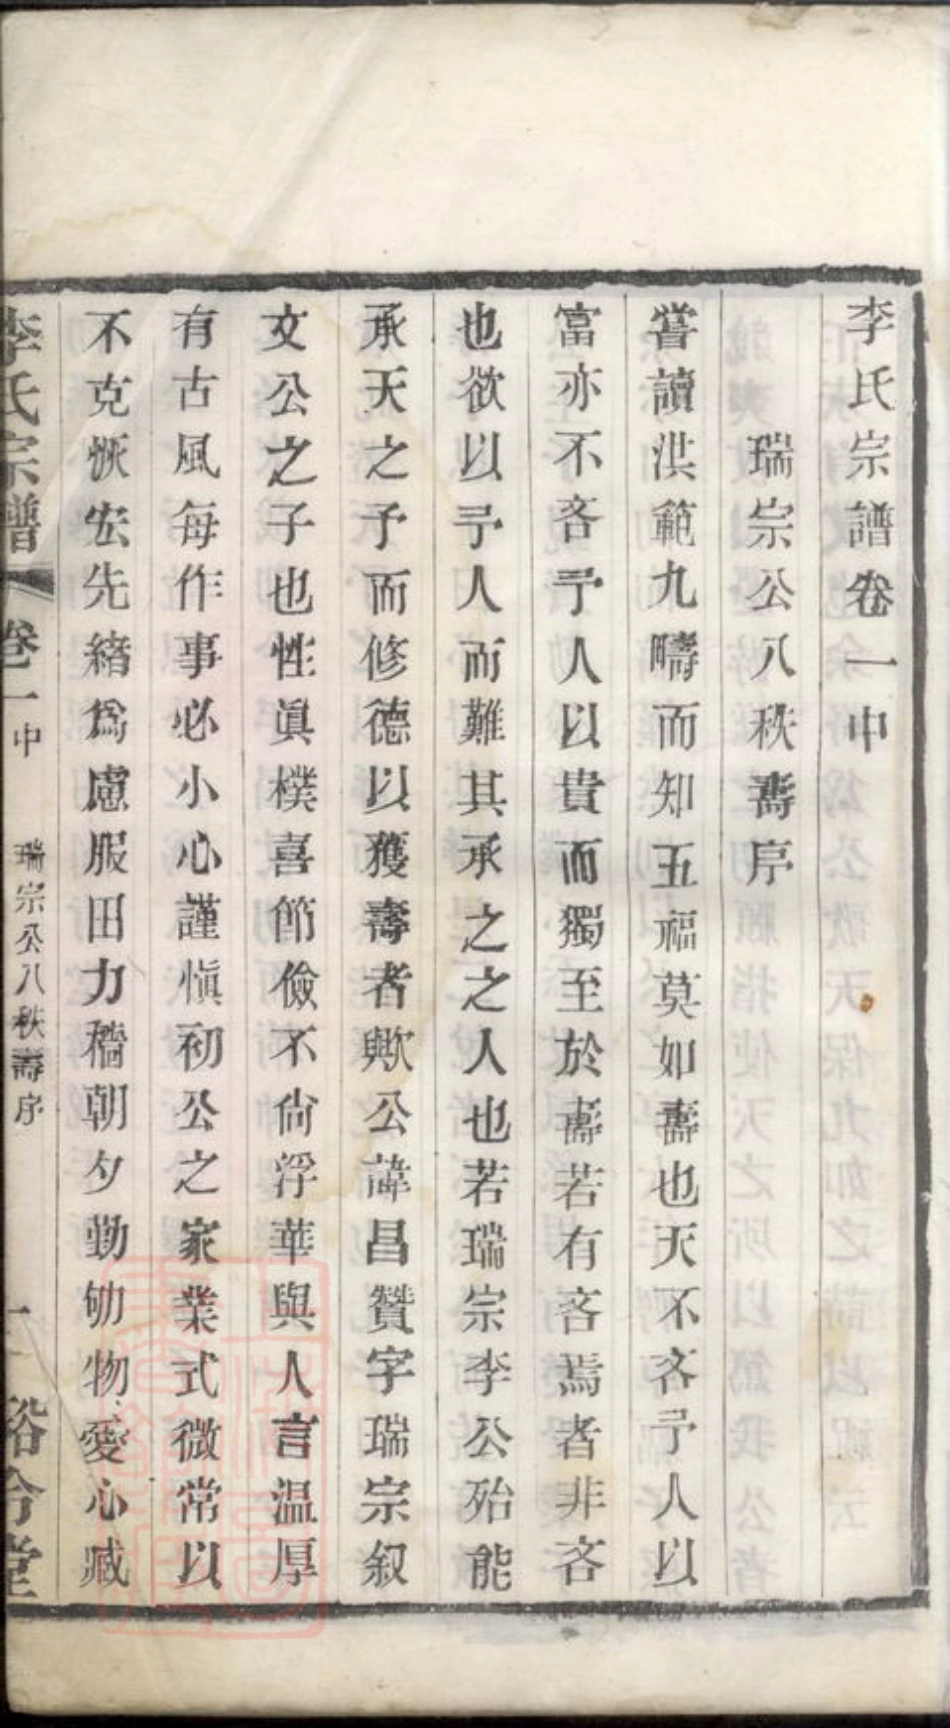 李氏宗譜卷一中
瑞宗公八秩壽序
嘗讀洪範九疇而知五福莫如壽也天不吝予人以
富亦不吝予人以貴而獨至於壽若有吝焉者非吝
也欲以予人而難其承之之人也若瑞宗李公殆能
承天之予而修德以獲壽者歟公諱昌贊字瑞宗叙
文公之子也性眞樸喜節儉不尙浮華與人言温厚
有古風每作事必小心謹愼初公之家業式微常以
不克恢宏先緒爲慮服田力穡朝夕勤劬物愛心臧
李氏宗譜 卷一中 瑞宗公八秩壽序 一 裕今堂